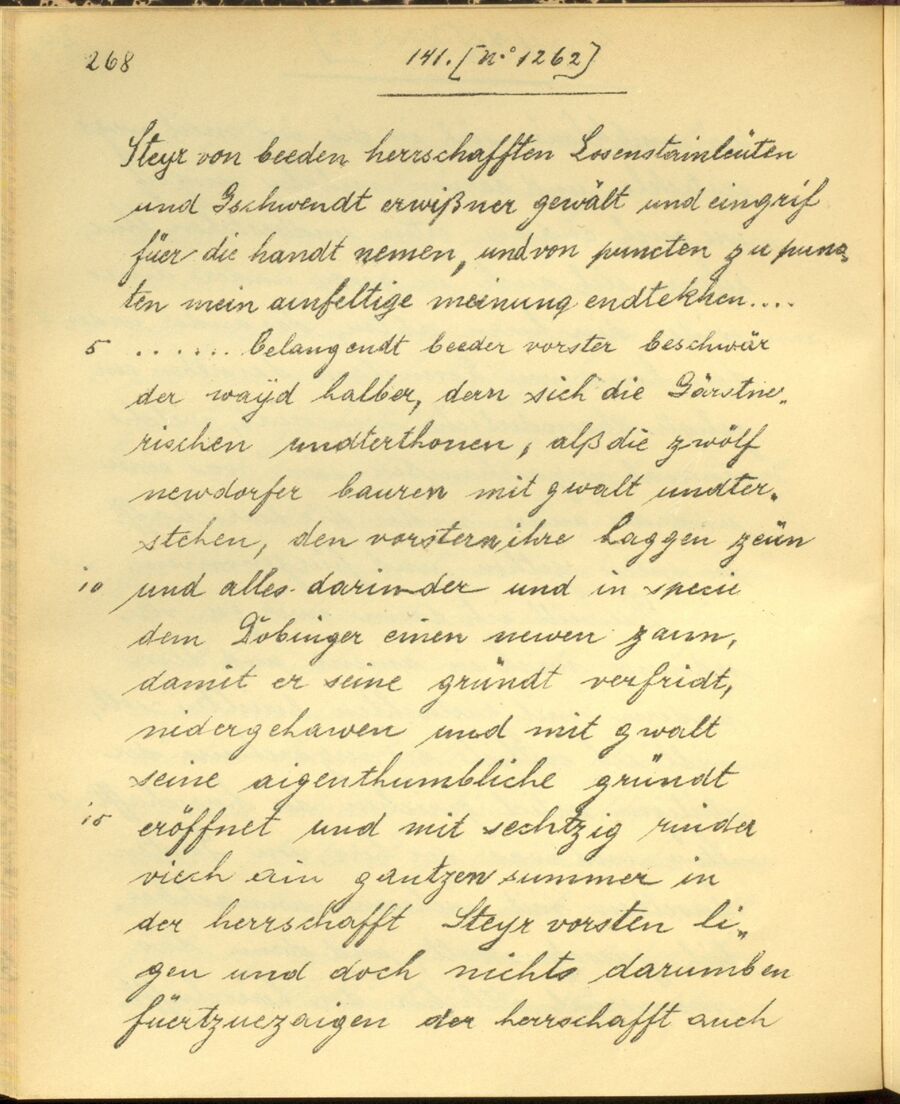 268
141. [No 1262]
Steyr von beeden herrschafften Losenstainleüten
und Gschwendt erwißner gewält und eingrif
füer die handt nemen, und von puncten zu punc„
ten mein ainfeltige meinung endtekhen....
5 ...... belangendt beeder vorster beschwär
der waÿd halber, dern sich die Gärstne„
rischen undterthonen, alß die zwölf
newdorfer bauren mit gwalt undter„
stehen, den vorstern ihre Laggen zeün
10 und alles darinder und in specie
dem Döbinger einen newen zaun,
damit er seine gründt verfridt,
nidergehawen und mit gwalt
seine aigenthumbliche gründt
15 eröffnet und mit sechtzig rinder
viech ain gantzen summer in
der herrschafft Steyr vorsten li„
gen und doch nichts darumben
füertzuezaigen der herrschafft auch